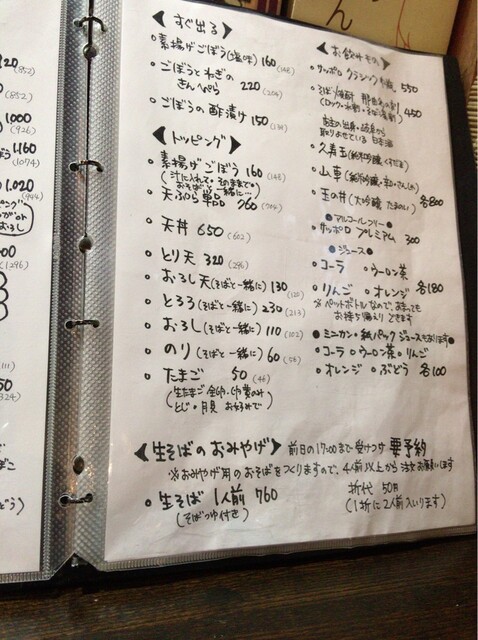 920
(852)
(852)
1,000
(926)
1,160
(1074)
1,020
(944)
(1296)
《すぐ出る》
・素揚げごぼう(塩味) 160 (148)
・ごぼうとねぎの
きんぺら 220 (204)
・ごぼうの酢漬け 150 (139)
《トッピング》
・素揚げごぼう 160 (148)
(汁に入れて・そのままで・
おそばと一緒に…
・天ぷら単品 760 (704)
・天丼 650 (602)
・とり天 320 (296)
・おろし天(そばと一緒に) 130 (120)
・とろろ(そばと一緒に) 230 (213)
・おろし(そばと一緒に) 110 (102)
・のり(そばと一緒に) 60 (56)
・たまご 50 (46)
(生たまご 全卵・卵黄のみ
とじ・月見 お好みで)
《お飲みもの》
・サッポロ クラシック 550
・そば焼酎 450
(ロック・水割・そば湯割)
取りよせている 日本酒
・久寿玉(純米吟醸・くすだま)
・山車(純米吟醸・さんしゃ)
・玉の井(大吟醸 たまのい) 各800
●アルコールフリー●
・サッポロ プレミアム 300
●ジュース●
・コーラ ・ウーロン茶
・りんご ・オレンジ 各180
※ペットボトルなので、あまっても
お持ち帰りできます
●ミニカン・紙パック ジュースもあります●
・コーラ ・ウーロン茶 ・りんご
・オレンジ ・ぶどう 各100
《生そばのおみやげ》 前日の17:00まで受けつけ 要予約
※おみやげ用のおそばをつくりますので、4人前以上から注文お願いします
・生そば 1人前 760
(そばつゆ付き)
折代 50円
(1折に2人前入ります)